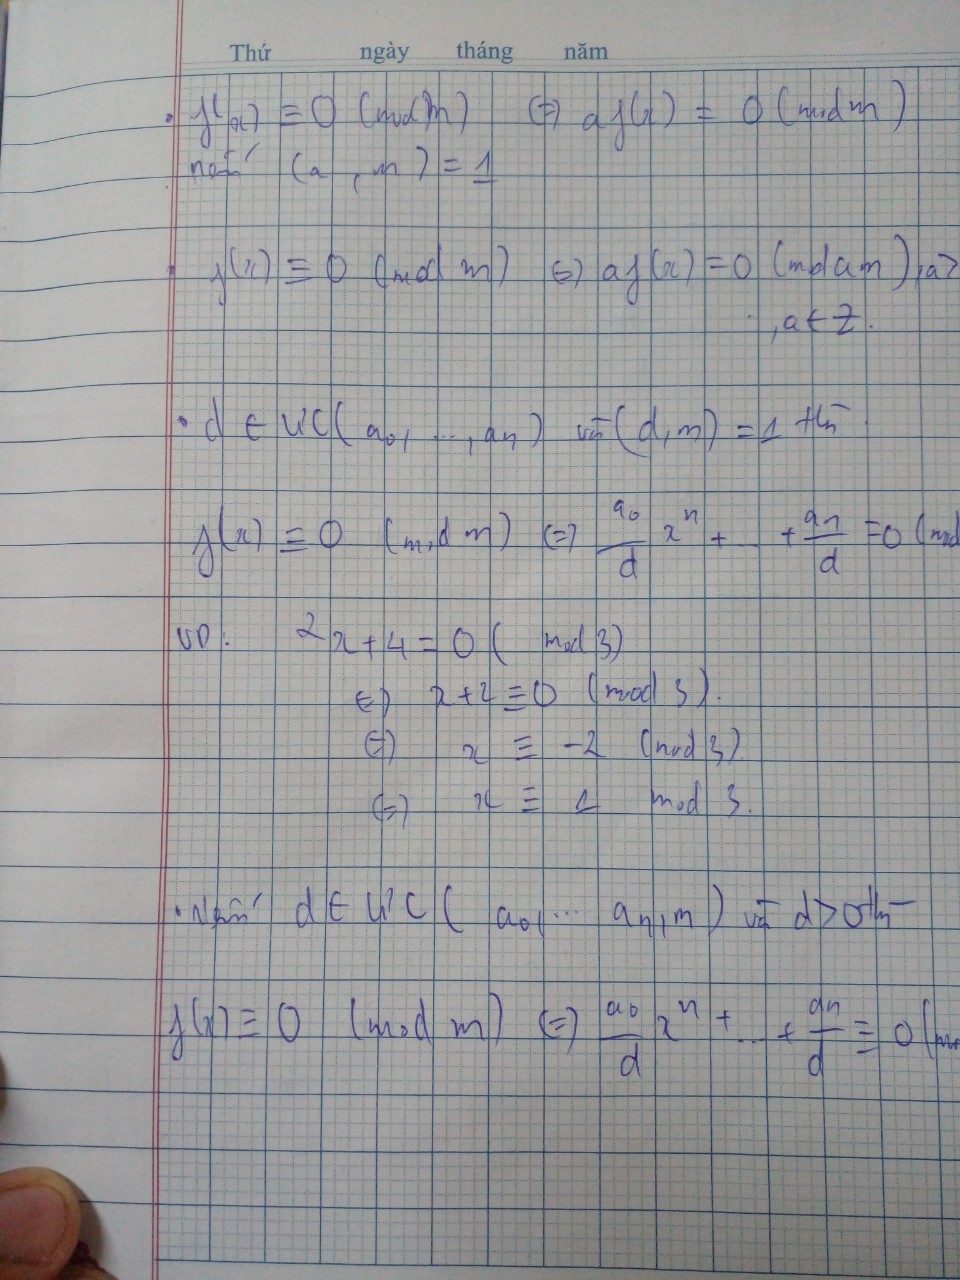 Thứ ngày tháng năm
• f(x) ≡ 0 (mod m) (=) af(x) = 0 (mod m)
nếu (a, m) = 1
• f(x) ≡ 0 (mod m) (=) af(x) = 0 (mod am), a>
, a ∈ Z.
• d ∈ ƯC(a₀, ..., aₙ) và (d, m) = 1 thì
f(x) ≡ 0 (mod m) (=) a₀/d xⁿ + ... + aₙ/d = 0 (mod
VD: 2x + 4 = 0 ( mod 3)
(=) x + 2 ≡ 0 (mod 3).
(=) x ≡ -2 (mod 3)
(=) x ≡ 1 mod 3.
• Nếu d ∈ ƯC( a₀, ... aₙ, m) và d > 0 thì
f(x) ≡ 0 (mod m) (=) a₀/d xⁿ + ... + aₙ/d ≡ 0 (m